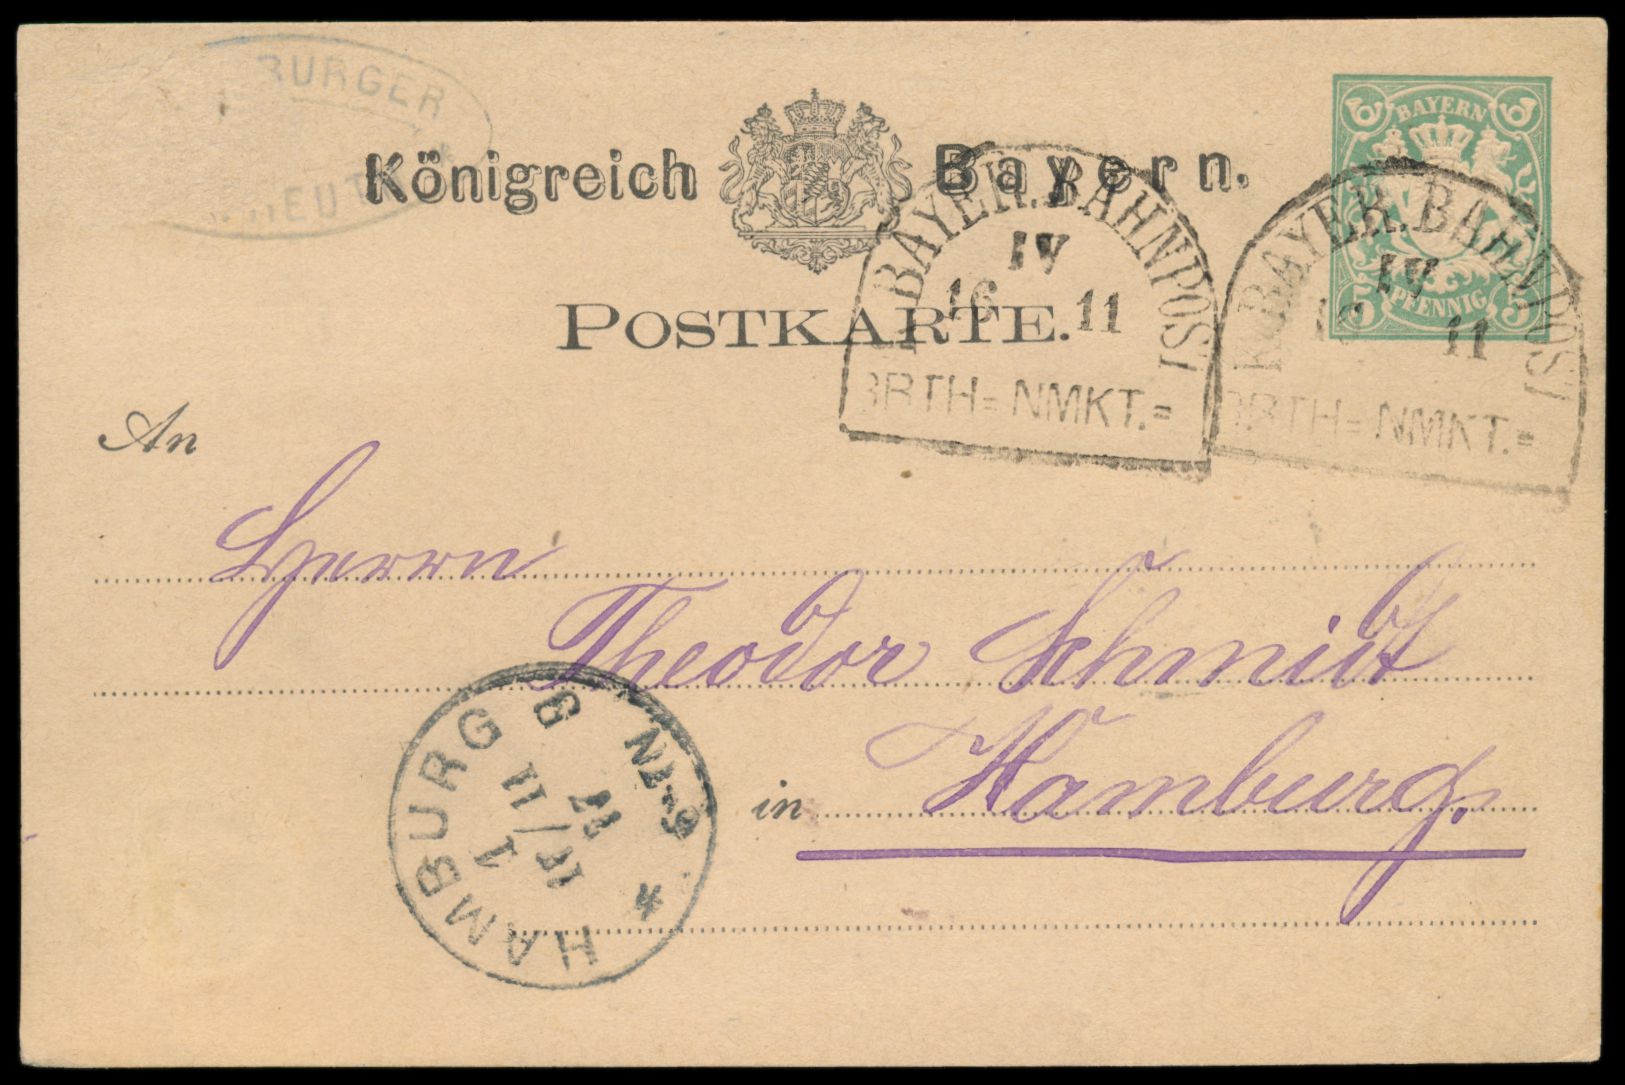 BURGER
EUT
Königreich Bayern.
BAYERN
PFENNIG
5 5
POSTKARTE.
K.BAYER.BAHNPOST
IV
16 11
BRTH=NMKT.=
K.BAYER.BAHNPOST
IV
11
BRTH=NMKT.=
An
Herrn
Theodor Schmidt
in Hamburg.
HAMBURG
1
17/11
77
6-7N
*